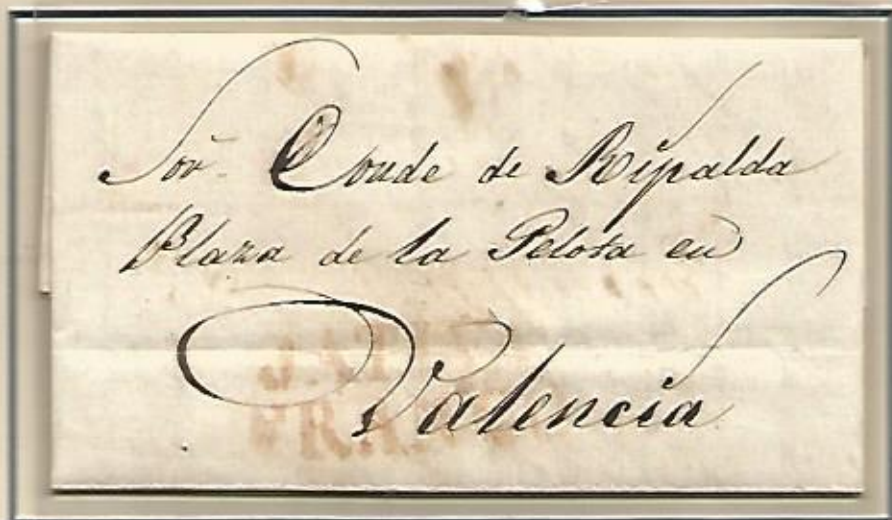 Sor Conde de Ripalda
Plaza de la Pelota en
Valencia